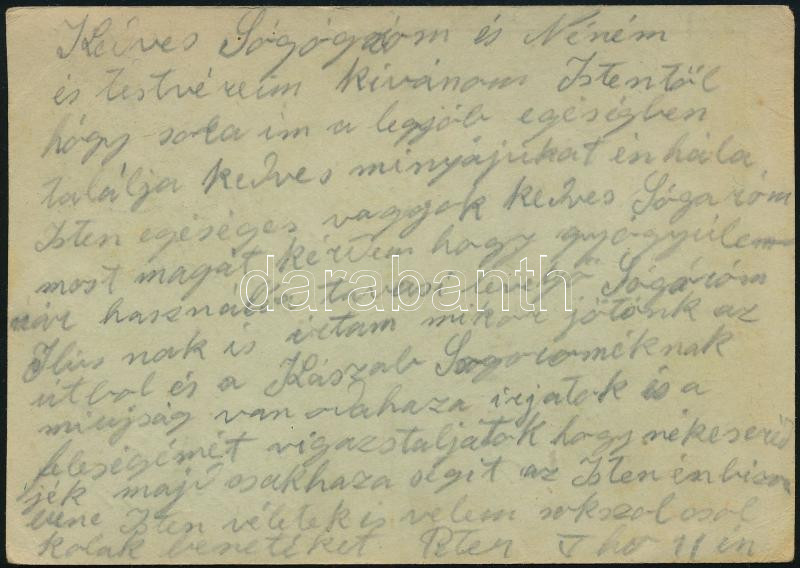 Kedves Sógógoróm és Néném
és testvéreim kívánom Istentől
hógy sola im a legjób egéségben
találja kedves minyájukat én hála
Isten egéséges vagyok kedves Sógaróm
most magát kérem hogy gyógyúle
már használ a tavasi levegő Sógóróm
Ilus nak is írtam mikor jötönk az
útbol és a Kászab Sogoroméknak
miujság van odahaza irjatok és a
feleségémét vigazstaljátok hogy nekeserüd
jék majd csakhaza ségit az Isten én bizom
bene Isten véletek is velem sokszol csol
kolak benetéket. Péter V hó 11 én
darabanth